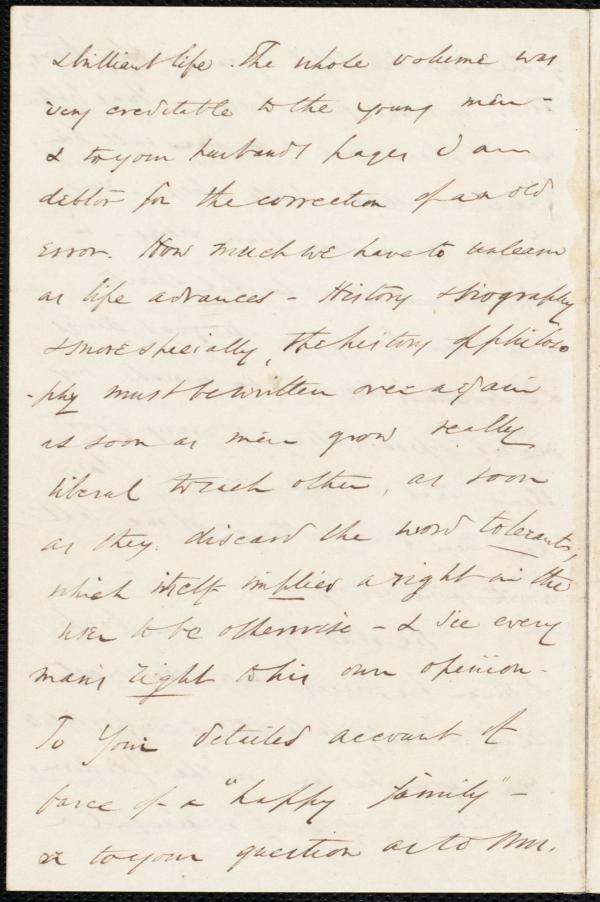 & brilliant life. The whole volume was
very creditable to the young men -
& to your husband's pages I am
debtor for the correction of an old
error. How much we have to unlearn
as life advances - History & biography
& more specially, the history of philoso
-phy must be written over again
as soon as men grow really
liberal to each other, as soon
as they discard the word tolerants,
which itself implies a right in the
user to be otherwise - & see every
man's right to his own opinion -
To your detailed account of
farce of a "happy family" -
& to your question as to Mr.